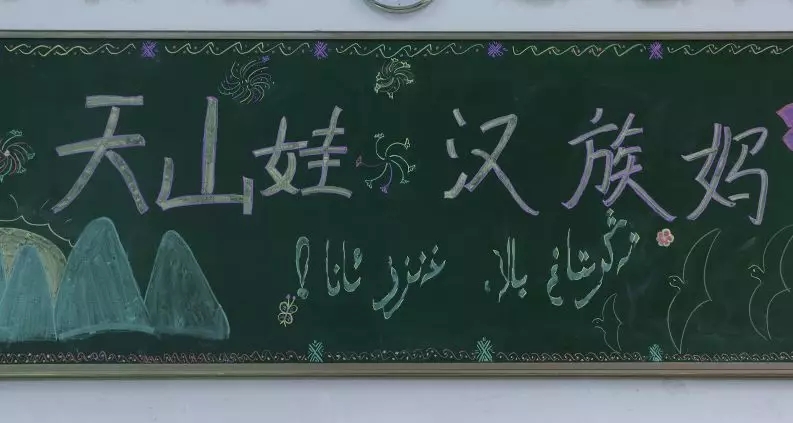 天山娃 汉族妈
تەڭرىتاغ بالا، خەنزۇ ئانا!